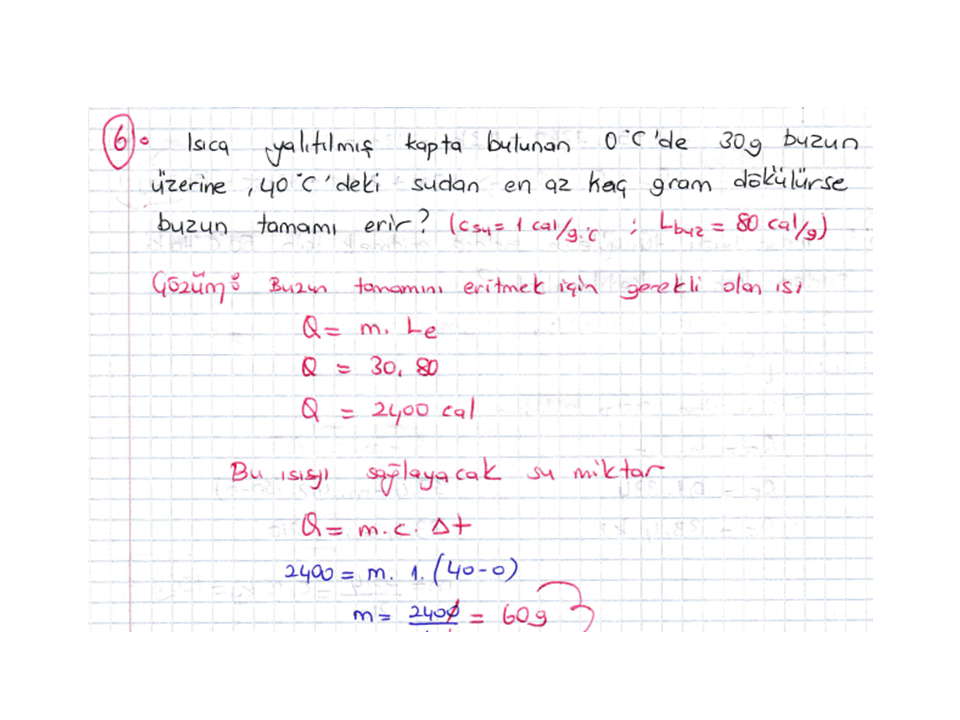 6. Isıca yalıtılmış kapta bulunan 0°C'de 30g buzun
üzerine, 40°C'deki sudan en az kaç gram dökülürse
buzun tamamı erir? (Csu = 1 cal/g.°C ; Lbuz = 80 cal/g)
Çözüm: Buzun tamamını eritmek için gerekli olan ısı
Q = m. Le
Q = 30. 80
Q = 2400 cal
Bu ısısyı sağlayacak su miktar
Q = m.c. Δt
2400 = m. 1. (40-0)
m = 2400 = 60g